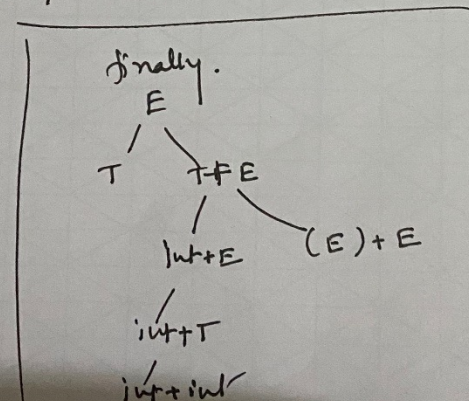 finally.
E
T T+E
int+E (E)+E
int+T
int+int